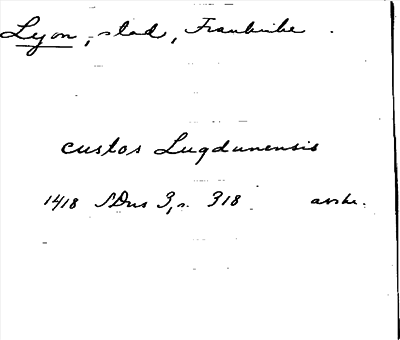 Lyon, stad, Frankrike.
custos Lugdunensis
1418 SDns 3, s. 318 avskr.